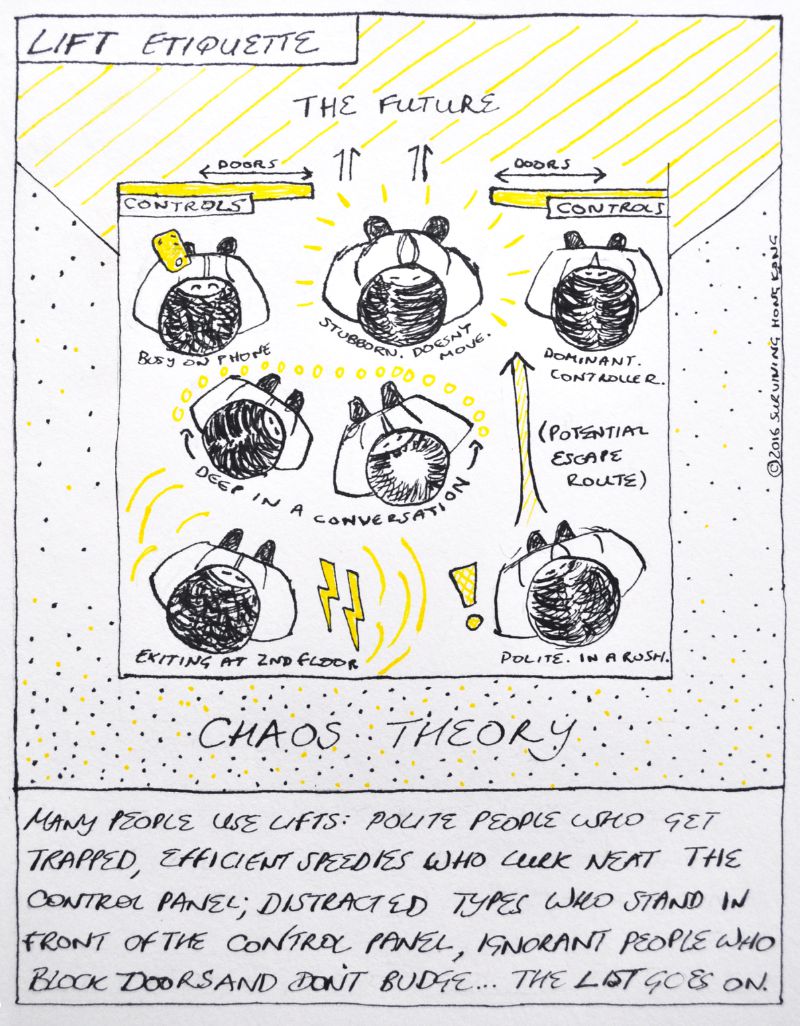 LIFT ETIQUETTE
THE FUTURE
DOORS
DOORS
CONTROLS
CONTROLS
BUSY ON PHONE
STUBBORN. DOESN'T MOVE.
DOMINANT.
CONTROLLER.
DEEP IN A CONVERSATION
(POTENTIAL
ESCAPE
ROUTE)
EXITING AT 2ND FLOOR
POLITE. IN A RUSH.
©2016 SURVIVING HONG KONG
CHAOS THEORY
MANY PEOPLE USE LIFTS: POLITE PEOPLE WHO GET
TRAPPED, EFFICIENT SPEEDIES WHO LURK NEAT THE
CONTROL PANEL; DISTRACTED TYPES WHO STAND IN
FRONT OF THE CONTROL PANEL, IGNORANT PEOPLE WHO
BLOCK DOORS AND DON'T BUDGE... THE LIST GOES ON.